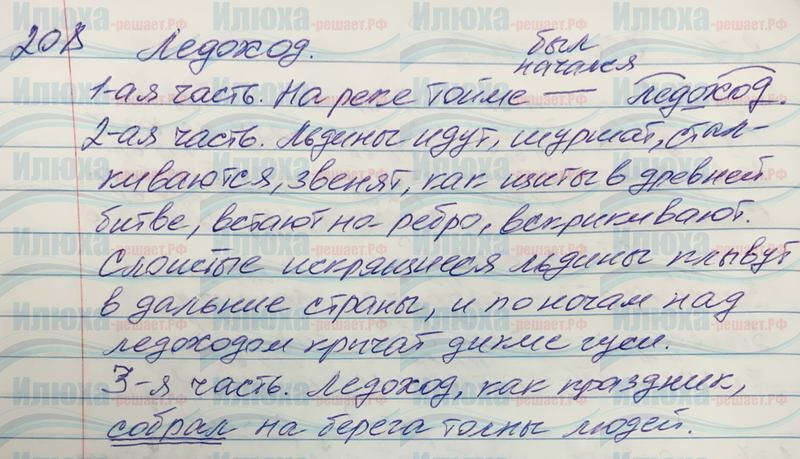 208 Ледоход.
был
начался
1-ая часть. На реке Тойме — ледоход.
2-ая часть. Льдины идут, шуршат, стал-
киваются, звенят, как щиты в древней
битве, встают на ребро, вскрикивают.
Слоистые искрящиеся льдины плывут
в дальние страны, и по ночам над
ледоходом кричат дикие гуси.
3-я часть. Ледоход, как праздник,
собрал на берега толпы людей.
Илюха-решает.РФ